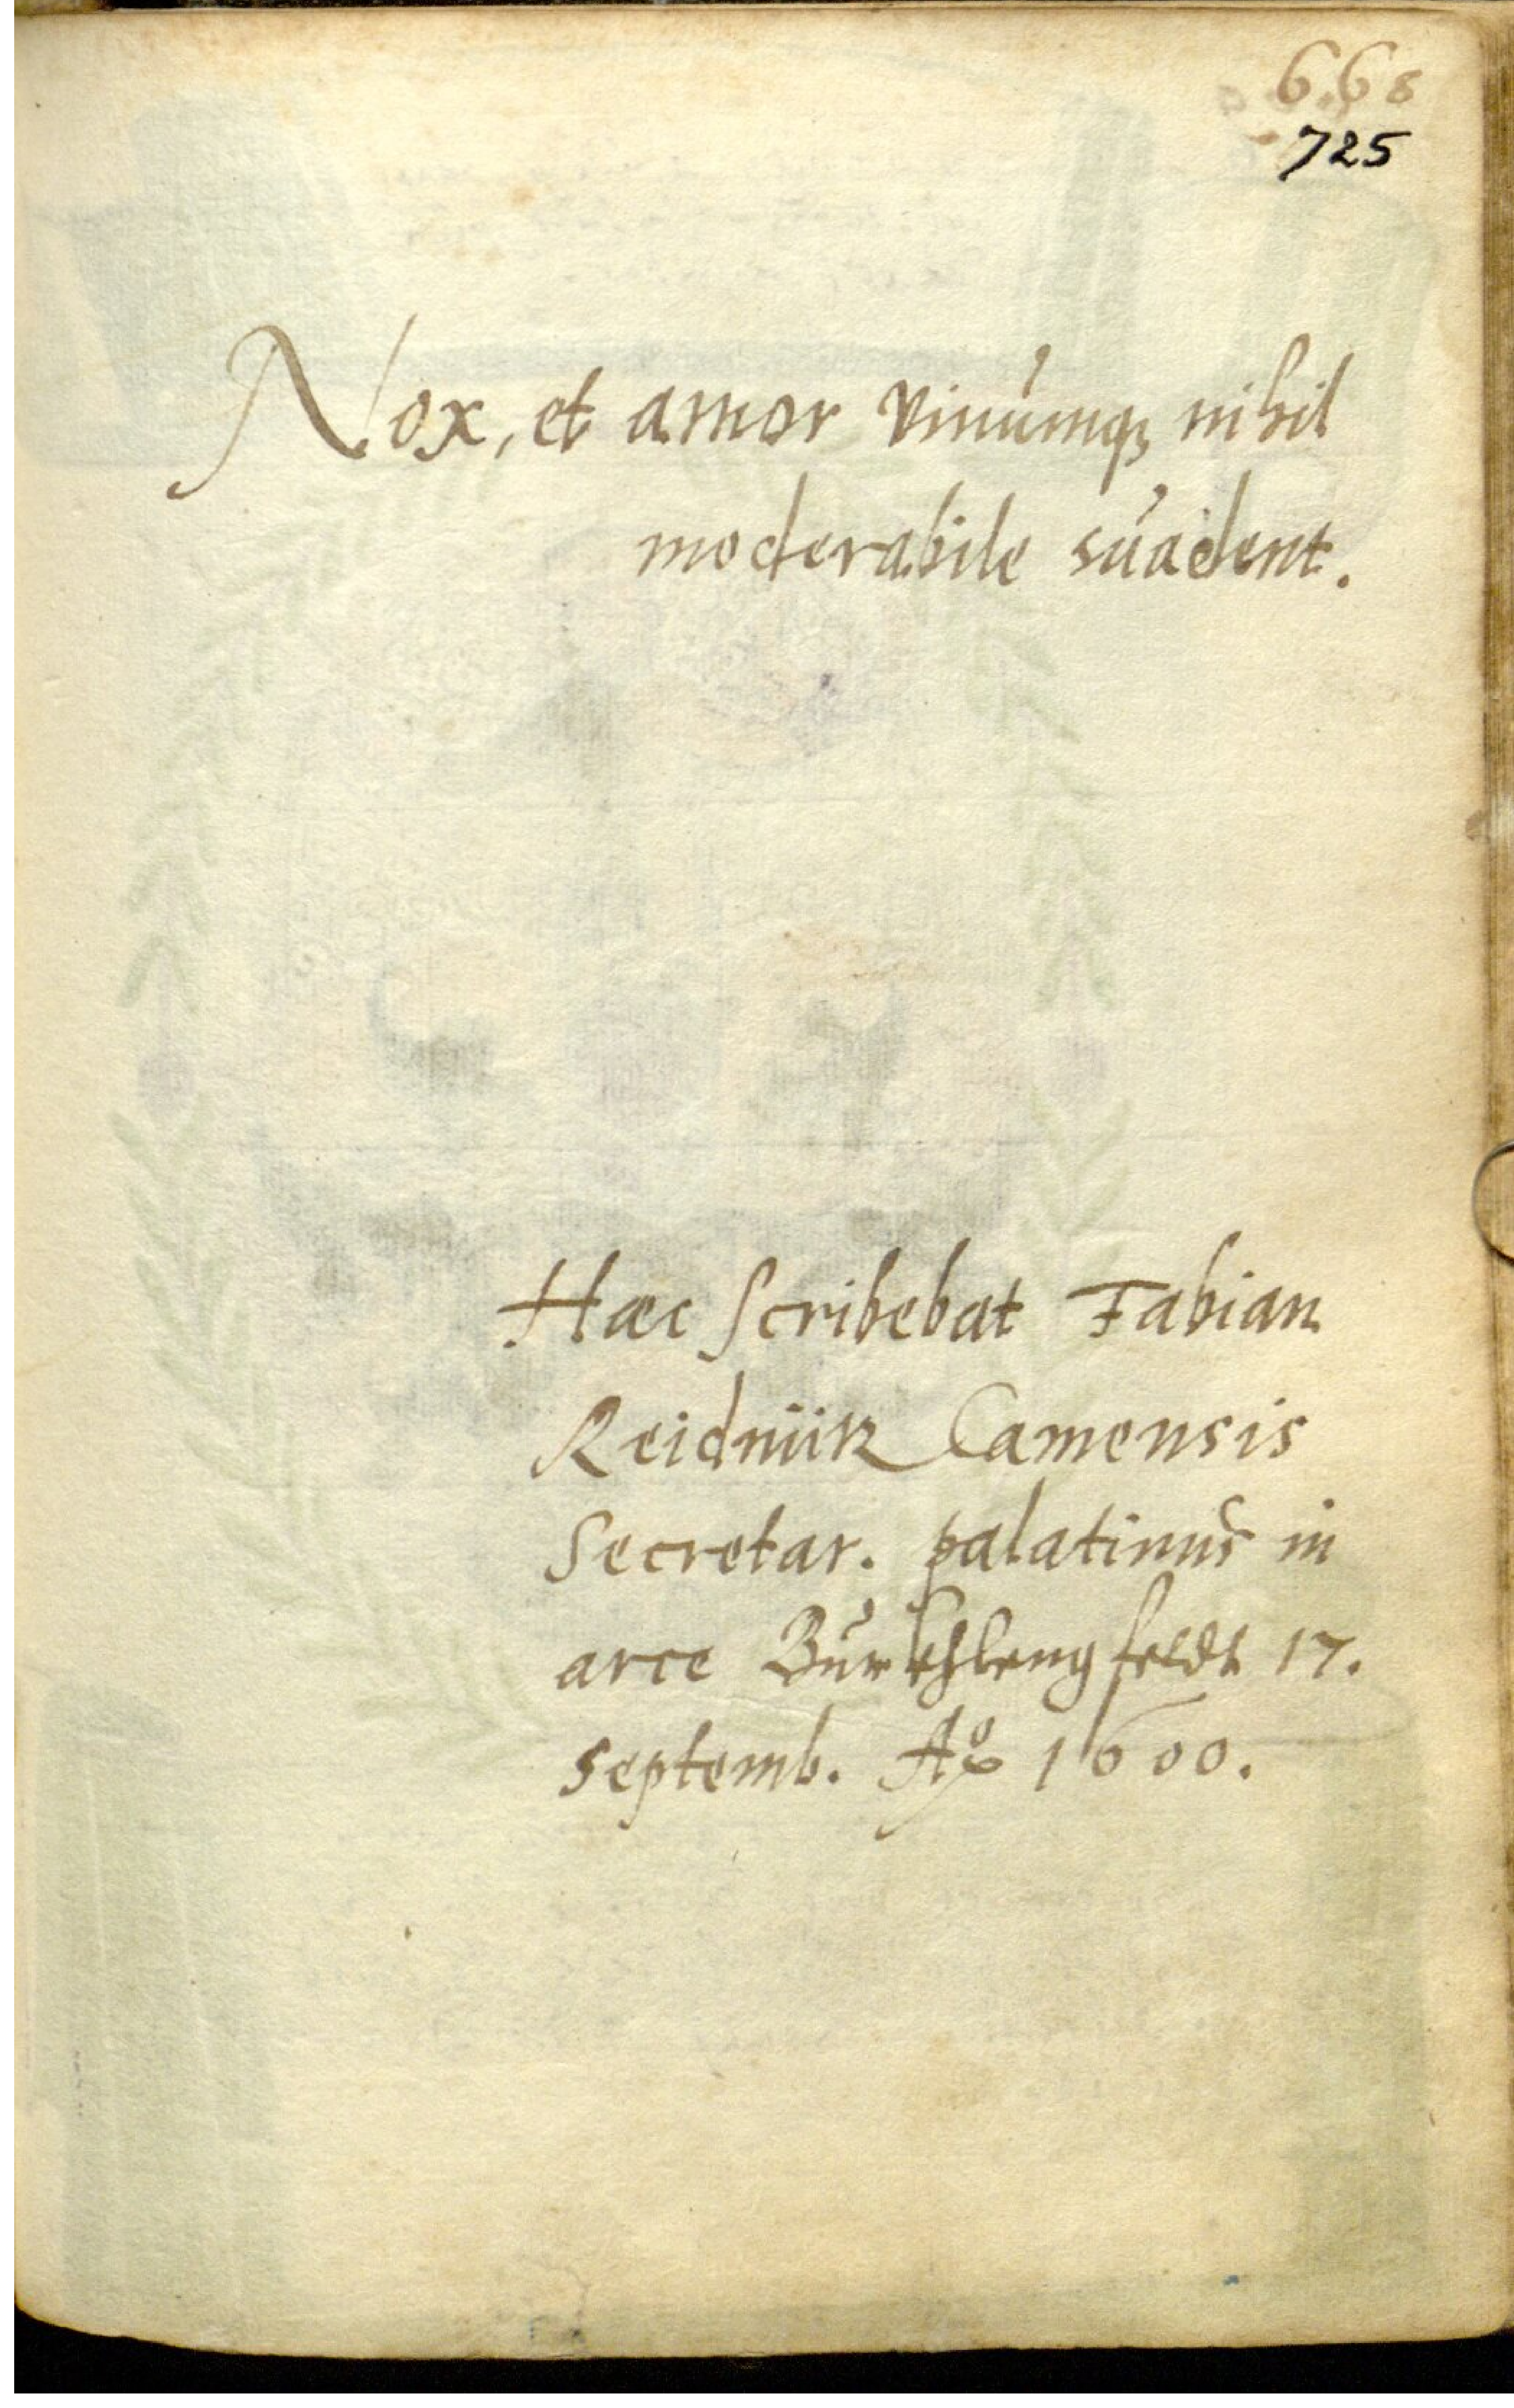 668
725
Nox, et amor vinumq; nihil
moderabile suadent.
Haec scribebat Fabian
Camensis
Secretar. palatinus in
arce Burkhlengfeldt 17.
septemb. Aº 1600.